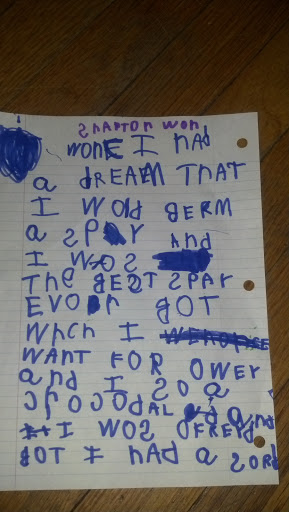 SHAPTOR WON
WONE I HAD
a dREAM THAT
I WOld BERM
a SPAY AND
I WOS
The BEST SPAY
EVOR BOT
WHCH I
WANT FOR OWER
and I SO a
CROCODAL and
I WOS OFREYD
BOT I HAD A SORD